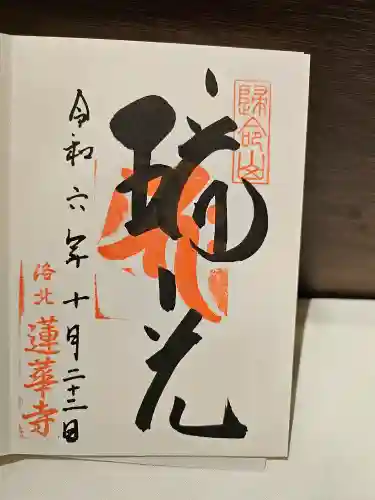 歸命山
花
令和六年十月二十二日
洛北
蓮華寺